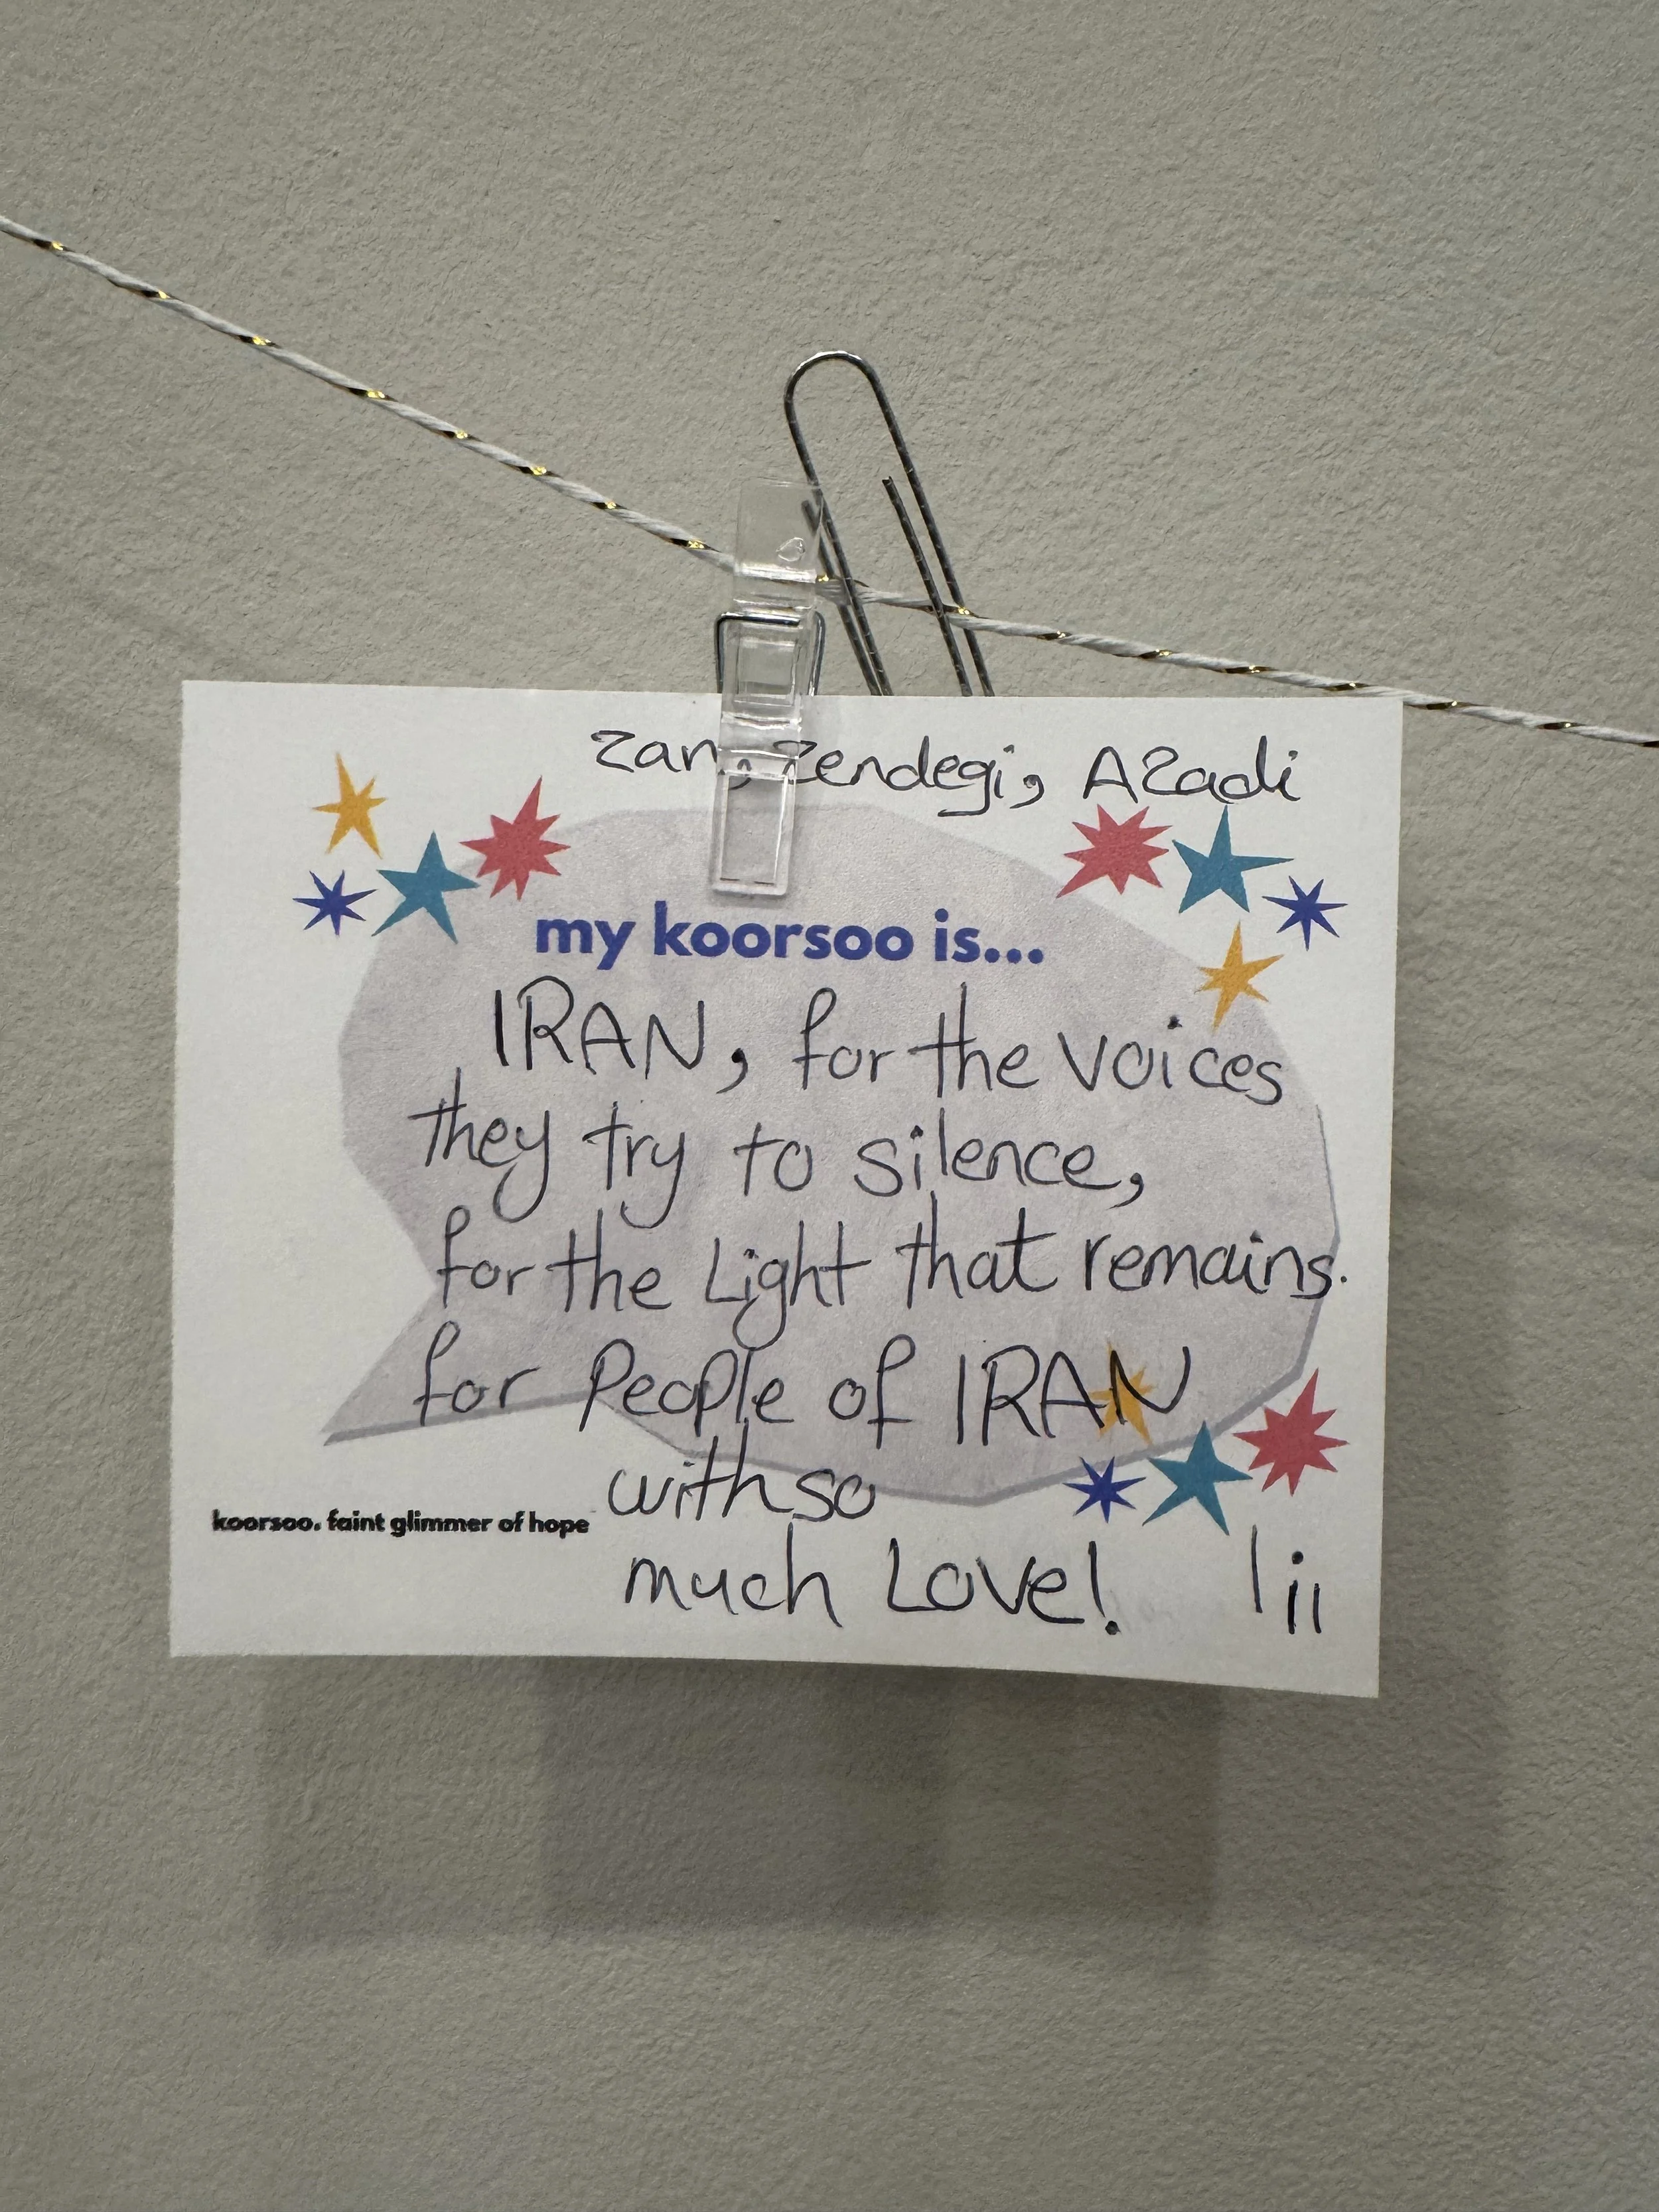 Zan, Zendegi, AZadi
my koorsoo is...
IRAN, for the voices
they try to silence,
for the Light that remains.
for People of IRAN
with so
koorsoo. faint glimmer of hope
much Love!